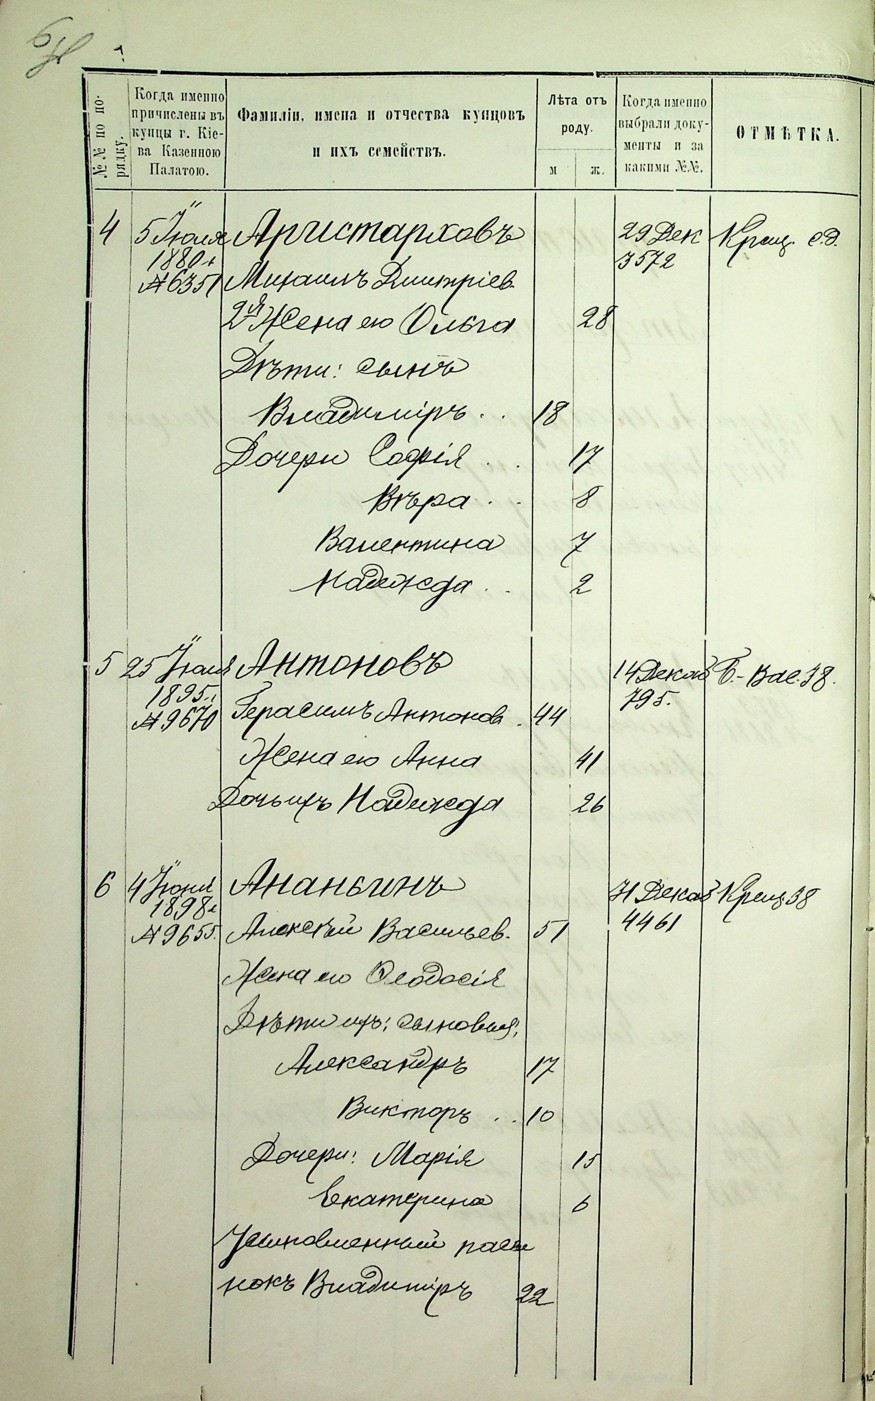 №№ по по-
рядку.
Когда именно
причислены въ
купцы г. Кіе-
ва Казенною
Палатою.
Фамиліи, имена и отчества купцовъ
и ихъ семействъ.
Лѣта отъ
роду.
м
ж.
Когда именно
выбрали доку-
менты и за
какими №№.
ОТМѢТКА.
4 5 Іюля Аристарховъ 29 Дек Крещ. с.д.
1880 г 3572
№ 6351 Михаилъ Дмитріев.
2я Жена его Ольга 28
Дѣти: сынъ
Владиміръ . . 18
Дочери Софія . . 17
Вѣра . . 8
Валентина 7
Надежда . . 2
5 25 Іюля Антоновъ 14 Декаб Б.-Вас. 38.
1895 г. 795.
№ 9670 Герасимъ Антонов. 44
Жена его Анна 41
Дочь ихъ Надежда 26
6 4 Іюня Ананьинъ 31 Декаб Крещ 38
1898 г 4461
№ 9655. Алексѣй Васильев. 51
Жена его Ѳеодосія
Дѣти ихъ: сыновья:
Александръ 17
Викторъ . . 10
Дочери: Марія 15
Екатерина 6
Усыновленный пасы
нокъ Владиміръ 22